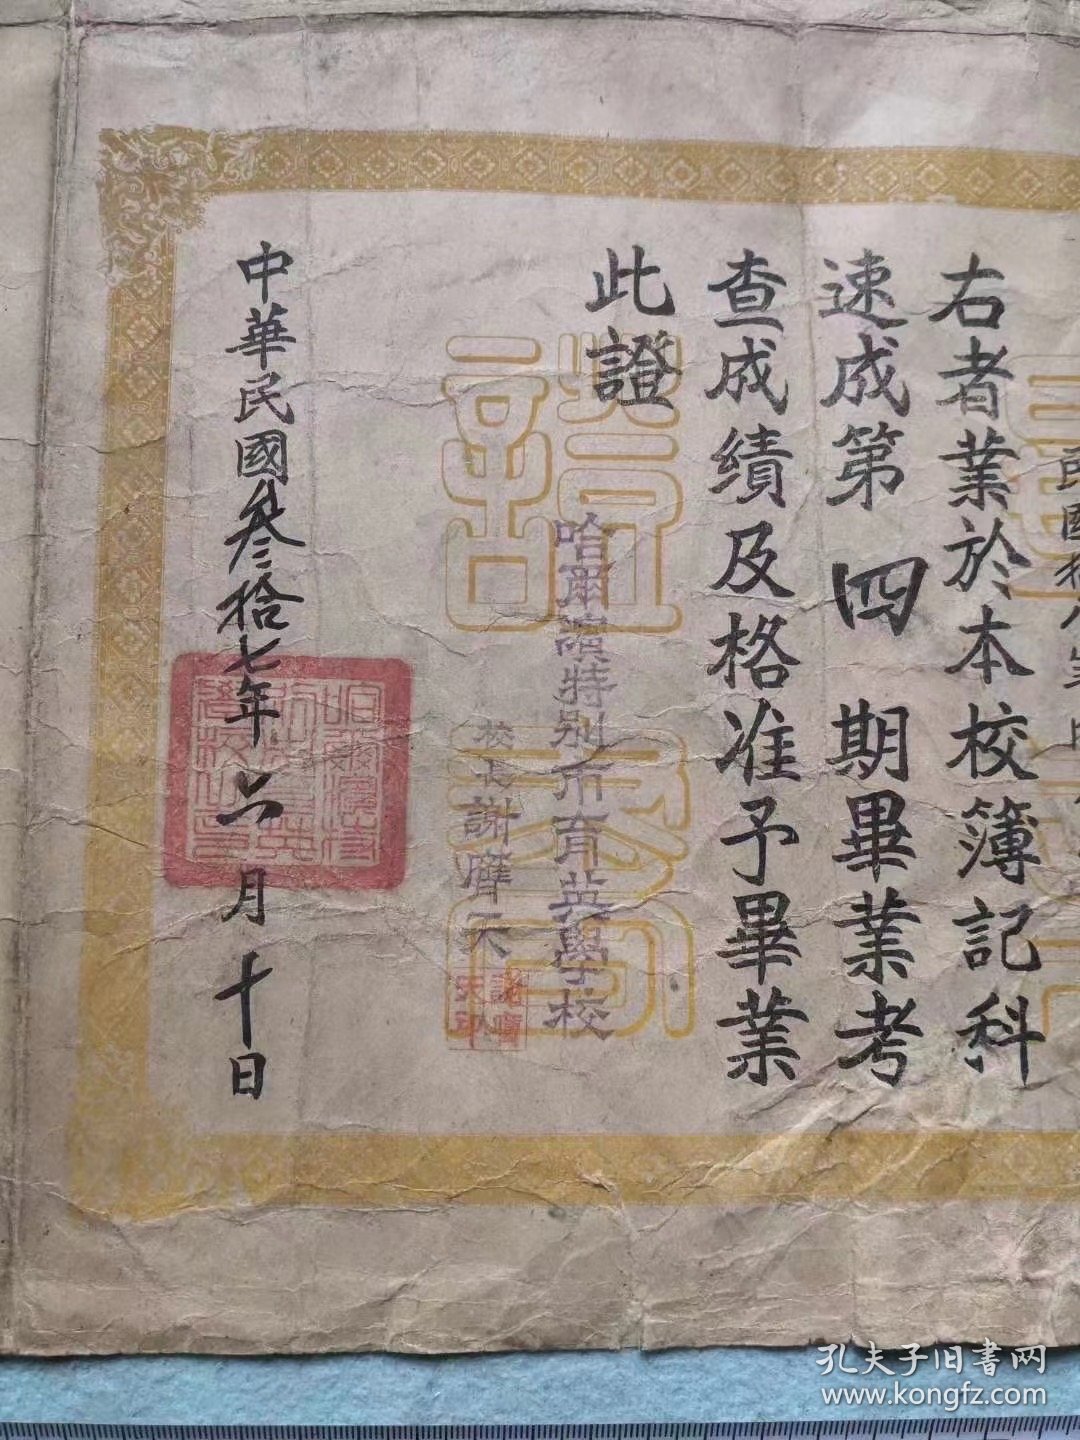 右者業於本校簿記科
速成第四期畢業考
查成績及格准予畢業
此證
哈爾濱特别市育英學校
校長謝賡天
中華民國叁拾七年六月十日
孔夫子旧書网
www.kongfz.com